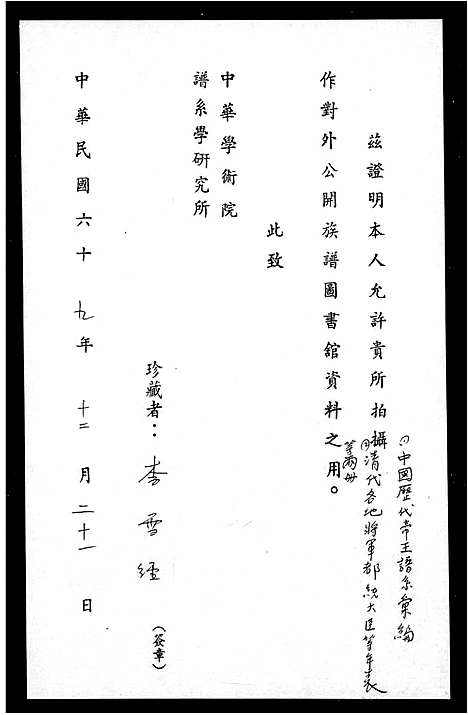 茲證明本人允許貴所拍攝
(1)中國歷代帝王譜系彙編
(2)清代各地將軍都統大臣等年表
等兩冊
作對外公開族譜圖書館資料之用。
此致
中華學術院
譜系學研究所
珍藏者：李雪經
(簽章)
中華民國六十九年十二月二十一日